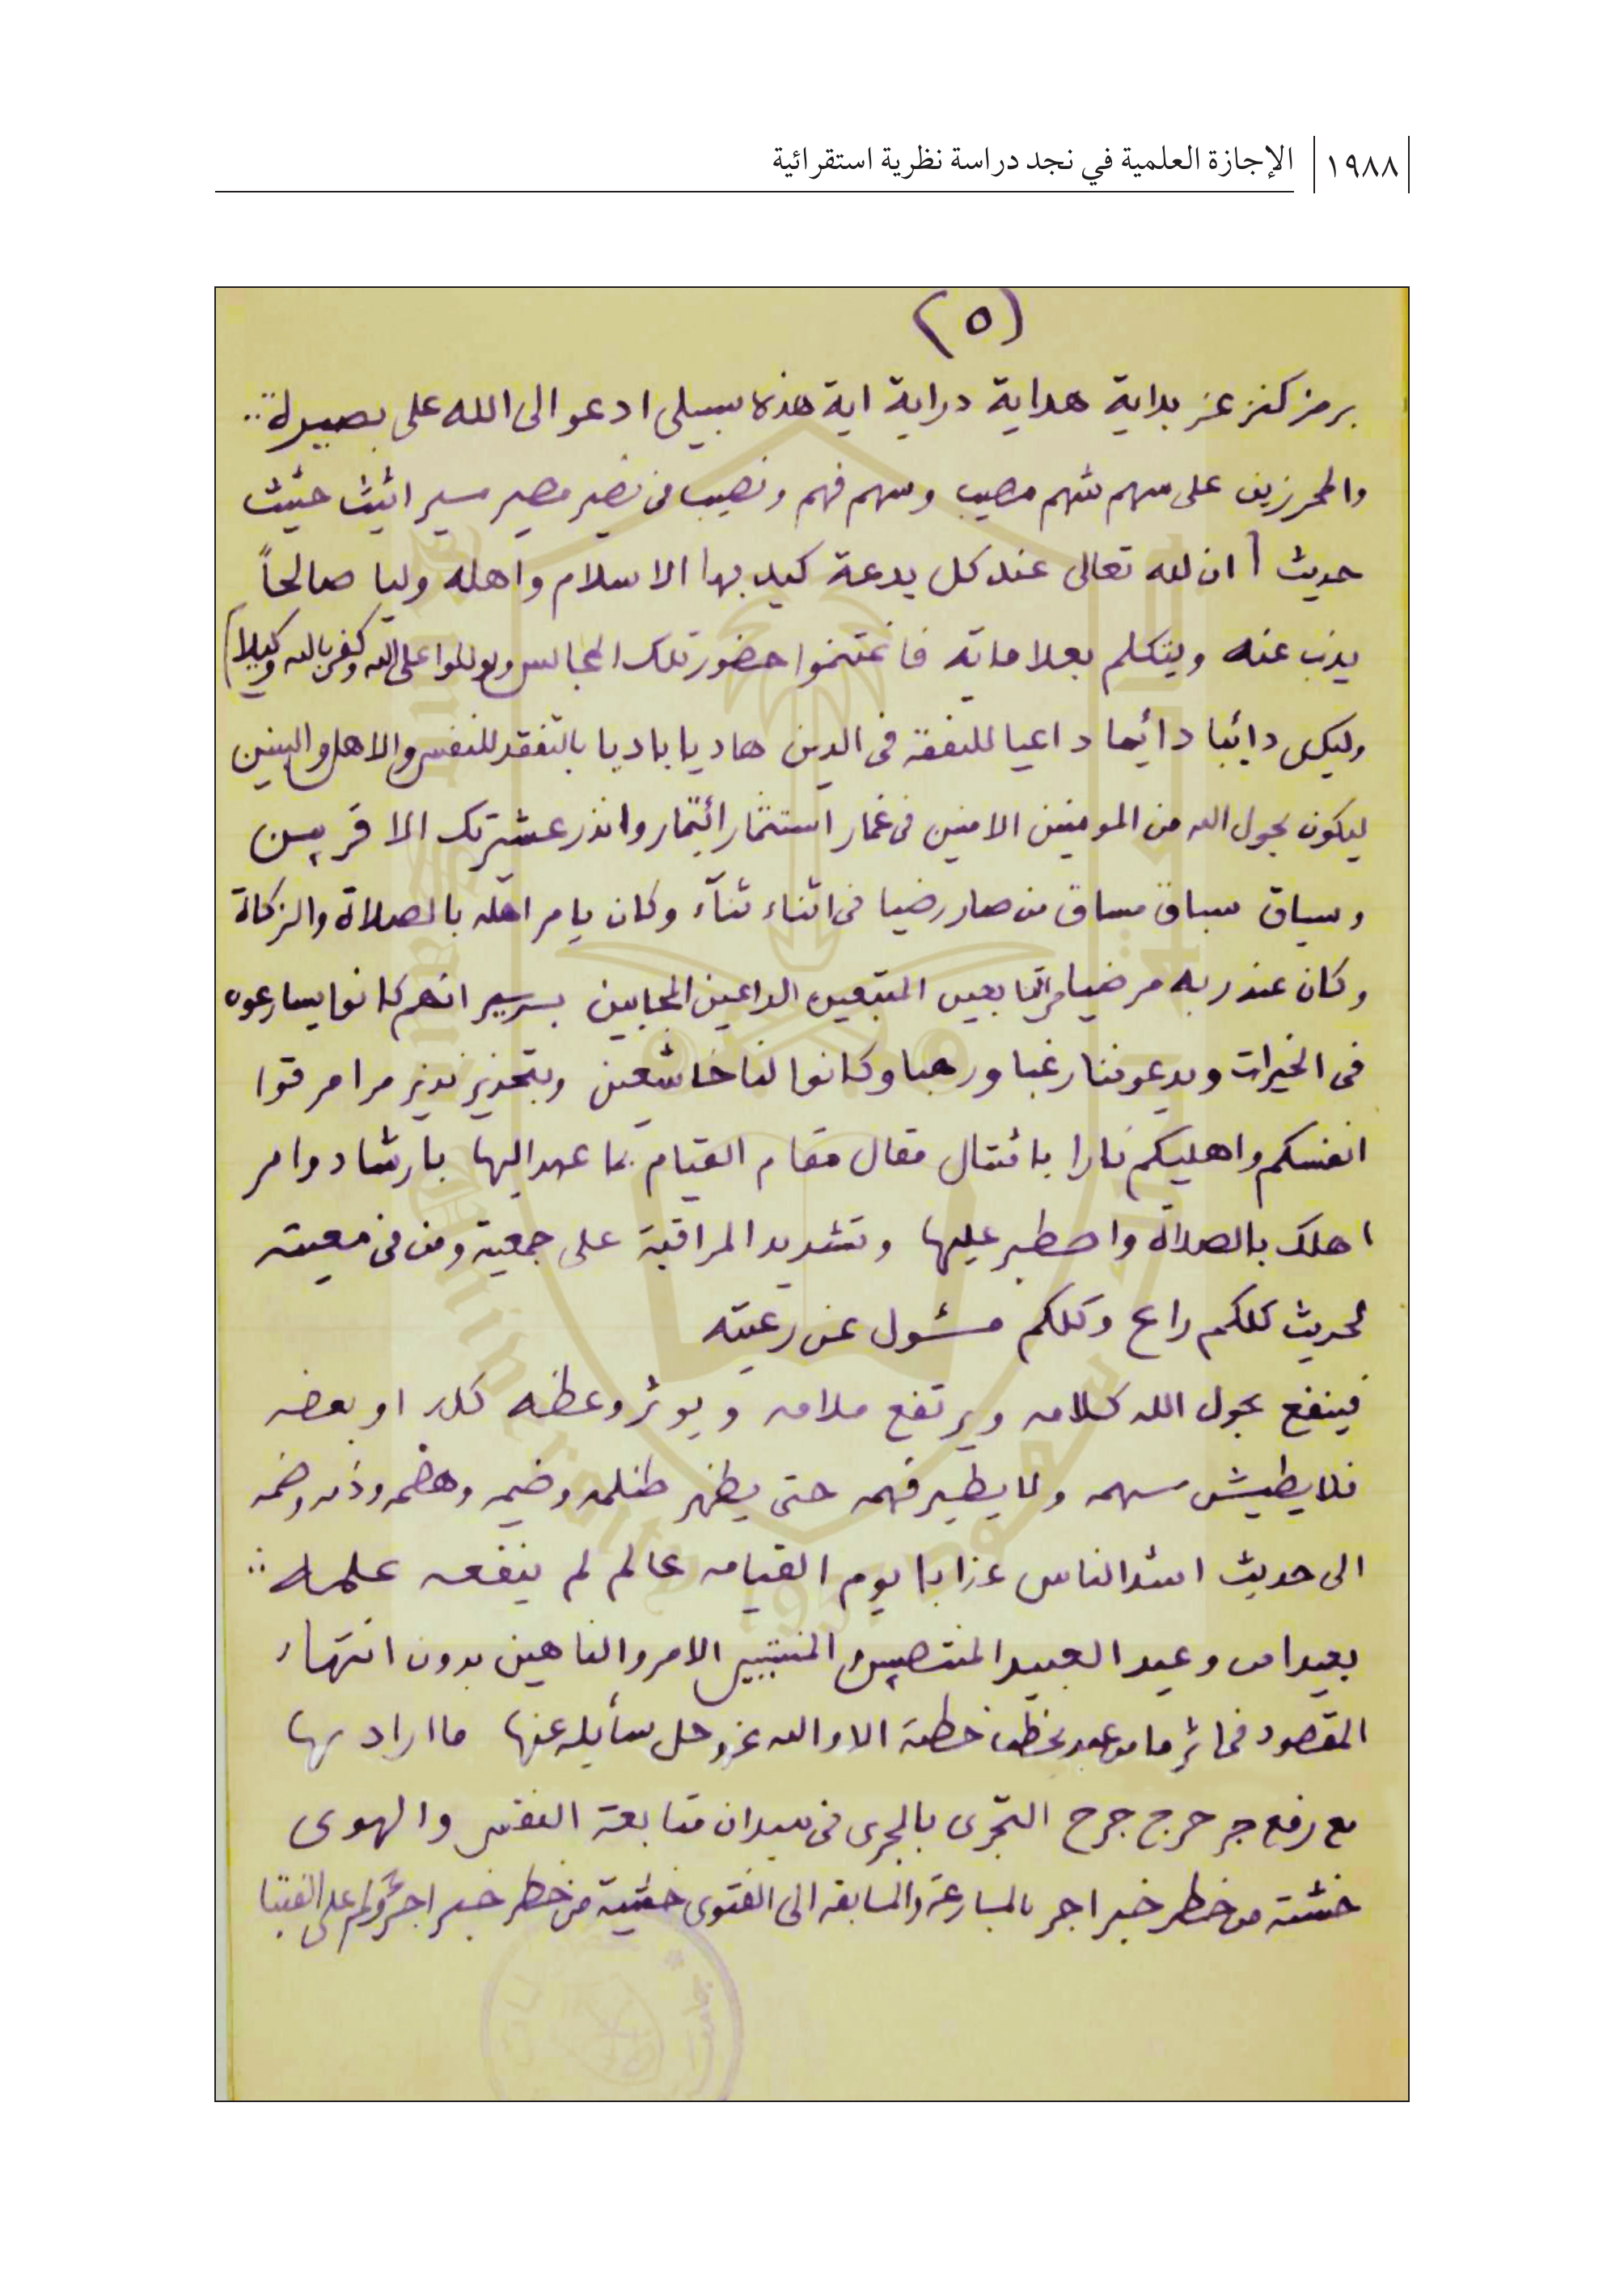 ١٩٨٨ الإجازة العلمية في نجد دراسة نظرية استقرائية
(٥)
برمز كنز عز بداية هداية دراية اية هذه سبيلى ادعوا الى الله على بصيرة
والمحرزين على سهم شهم مصيب وسهم فهم ونصيب من نصير مصير مسير اثيث حثيث
حديث [ان لله تعالى عند كل بدعة كيد بها الاسلام واهله وليا صالحاً
يذب عنه ويتكلم بعلاماته فاغتنموا حضور تلك المجالس وتوكلوا على الله وكفى بالله وكيلا]
وليكن دائبا دائما داعيا للتفقة فى الدين هاديا باديا بالتفقد للنفس والاهل والبنين
ليكون بحول الله من المومنين الامنين فى غمار استثمار ائتمار وانذر عشيرتك الاقربين
وسياق سباق مساق من صار رضيا فى اثناء ثنآء وكان يامر اهله بالصلاة والزكاة
وكان عند ربه مرضيا والتابعين المتبعين الداعين المجابين بسرير انهم كانوا يسارعون
فى الخيرات ويدعوننا رغبا ورهبا وكانوا لنا خاشعين وبتحذير نذير مرامر قوا
انفسكم واهليكم نارا بامتثال مقال مقام القيام بما عهد اليها بارشاد وامر
اهلك بالصلاة واصطبر عليها وتشديد المراقبة على جمعية ومن فى معيته
لحديث كلكم راع وكلكم مسئول عن رعيته
فينفع بحول الله كلامه ويرتفع ملامه ويوثر وعظه كله او بعضه
فلا يطيش سهمه ولا يطير فهمه حتى يظهر ظلمه وضيمه وهضمه وذمه وضمه
الى حديث اشد الناس عذابا يوم القيامه عالم لم ينفعه علمه
بعيدا من وعيد العبيد المنتصبين المنتسبين الامر والناهين بدون انتهاء
المقصود فى اثر ما من عبد يخطب خطبة الا والله عز وجل سايله عنها ما اراد بها
مع رفع جر حرج جرح التجرى بالجرى فى ميدان متابعة النفس والهوى
خشية من خطر خبر اجر بالمسارعة والمسابقه الى الفتوى خشية من خطر خبر اجرؤكم على الفتيا